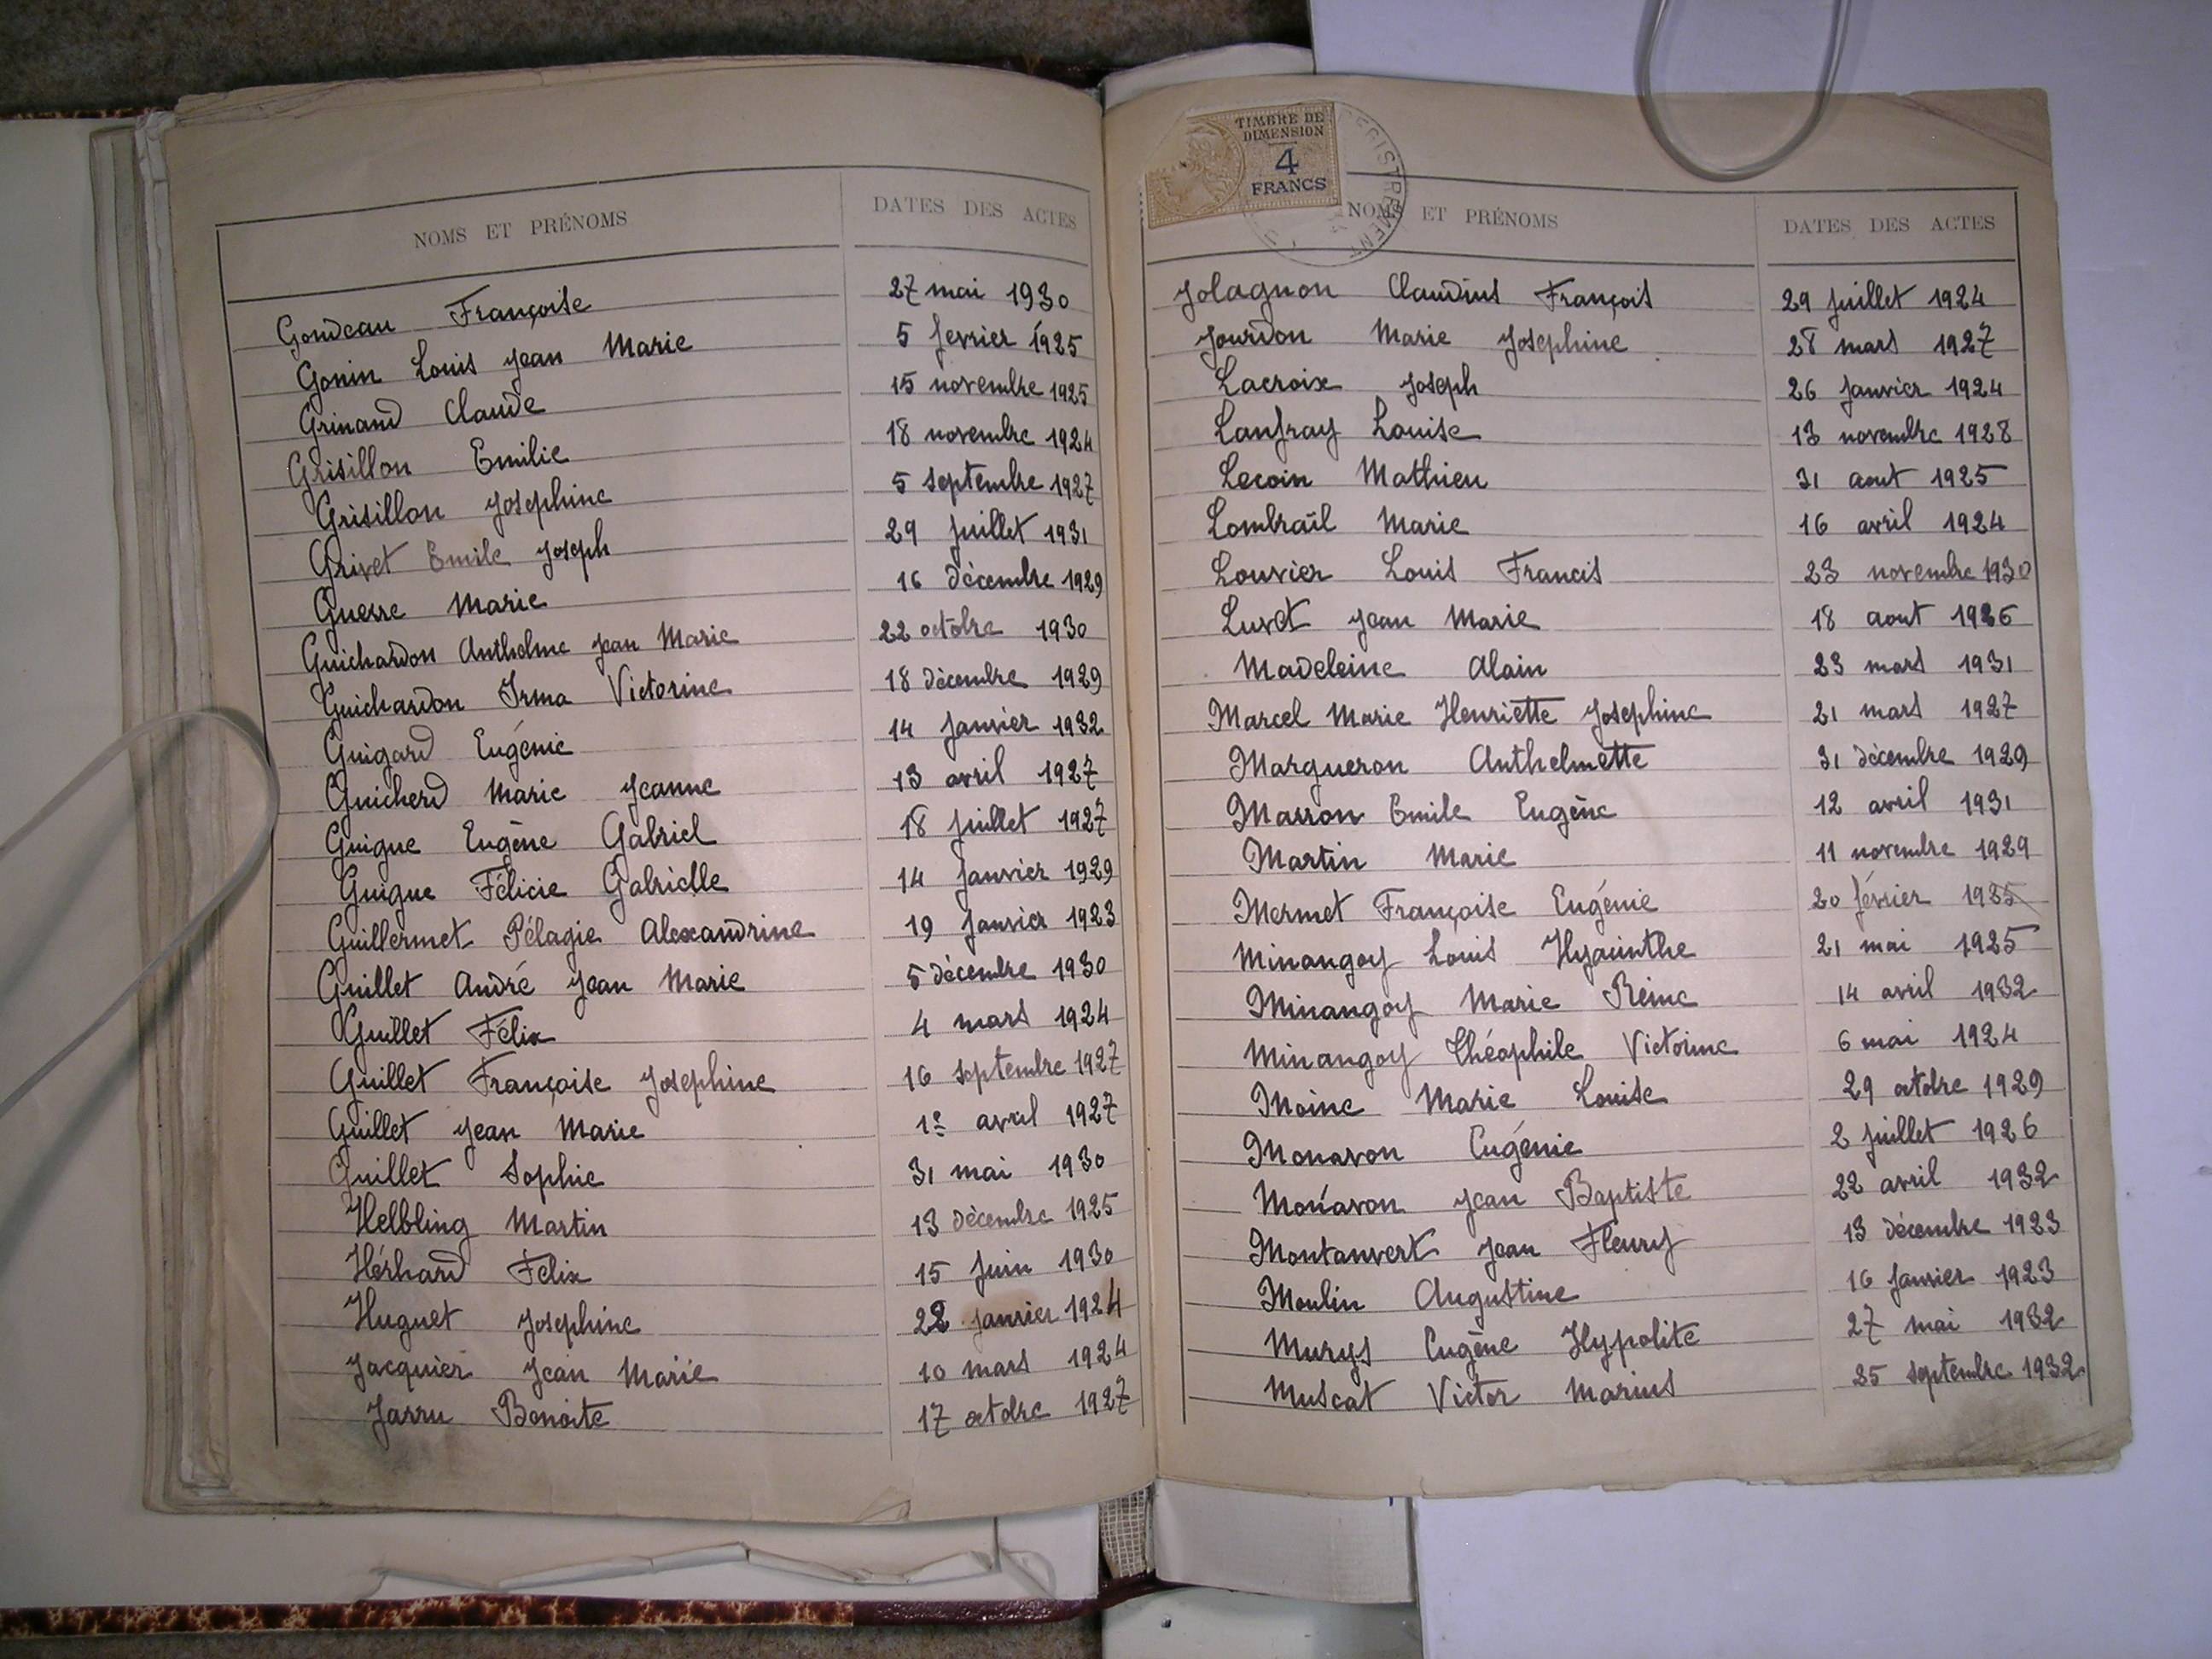 NOMS ET PRÉNOMS DATES DES ACTES
Gondeau Françoise 27 mai 1930
Gonin Louis Jean Marie 5 fevrier 1925
Grinand Claude 15 novembre 1925
Grisillon Emilie 18 novembre 1924
Grisillon Josephine 5 septembre 1927
Grivet Emile Joseph 29 juillet 1931
Guerre Marie 16 décembre 1929
Guichardon Anthelme Jean Marie 22 octobre 1930
Guichardon Irma Victorine 18 décembre 1929
Guigard Eugénie 14 Janvier 1932
Guicherd Marie Jeanne 13 avril 1927
Guigue Eugène Gabriel 18 juillet 1927
Guigue Félicie Gabrielle 14 Janvier 1929
Guillermet Pélagie Alexandrine 19 Janvier 1923
Guillet André Jean Marie 5 décembre 1930
Guillet Félix 4 mars 1924
Guillet Françoise Josephine 16 septembre 1927
Guillet Jean Marie 1er avril 1927
Guillet Sophie 31 mai 1930
Helbling Martin 13 décembre 1925
Hérhard Félix 15 Juin 1930
Huguet Josephine 22 janvier 1924
Jacquier Jean Marie 10 mars 1924
Jarru Benoite 17 octobre 1927
TIMBRE DE
DIMENSION
4
FRANCS
NOMS ET PRÉNOMS DATES DES ACTES
Jolagnon Claudius François 29 juillet 1924
Jourdon Marie Josephine 28 mars 1927
Lacroix Joseph 26 Janvier 1924
Lanfray Louise 13 novembre 1928
Lecoin Mathieu 31 aout 1925
Lombrail Marie 16 avril 1924
Louvier Louis Francis 23 novembre 1930
Luvet Jean Marie 18 aout 1926
Madeleine Alain 23 mars 1931
Marcel Marie Henriette Josephine 21 mars 1927
Margueron Anthelmette 31 décembre 1929
Marron Emile Eugène 12 avril 1931
Martin Marie 11 novembre 1929
Mermet Françoise Eugénie 20 février 1925
Minangoy Louis Hyacinthe 21 mai 1925
Minangoy Marie Reine 14 avril 1932
Minangoy Théophile Victoine 6 mai 1924
Moine Marie Louise 29 octobre 1929
Monavon Eugénie 2 juillet 1926
Monavon Jean Baptiste 22 avril 1932
Montanvert Jean Fleury 13 décembre 1923
Moulin Augustine 16 Janvier 1923
Murys Eugène Hypolite 27 mai 1932
Muscat Victor Marius 25 septembre 1932